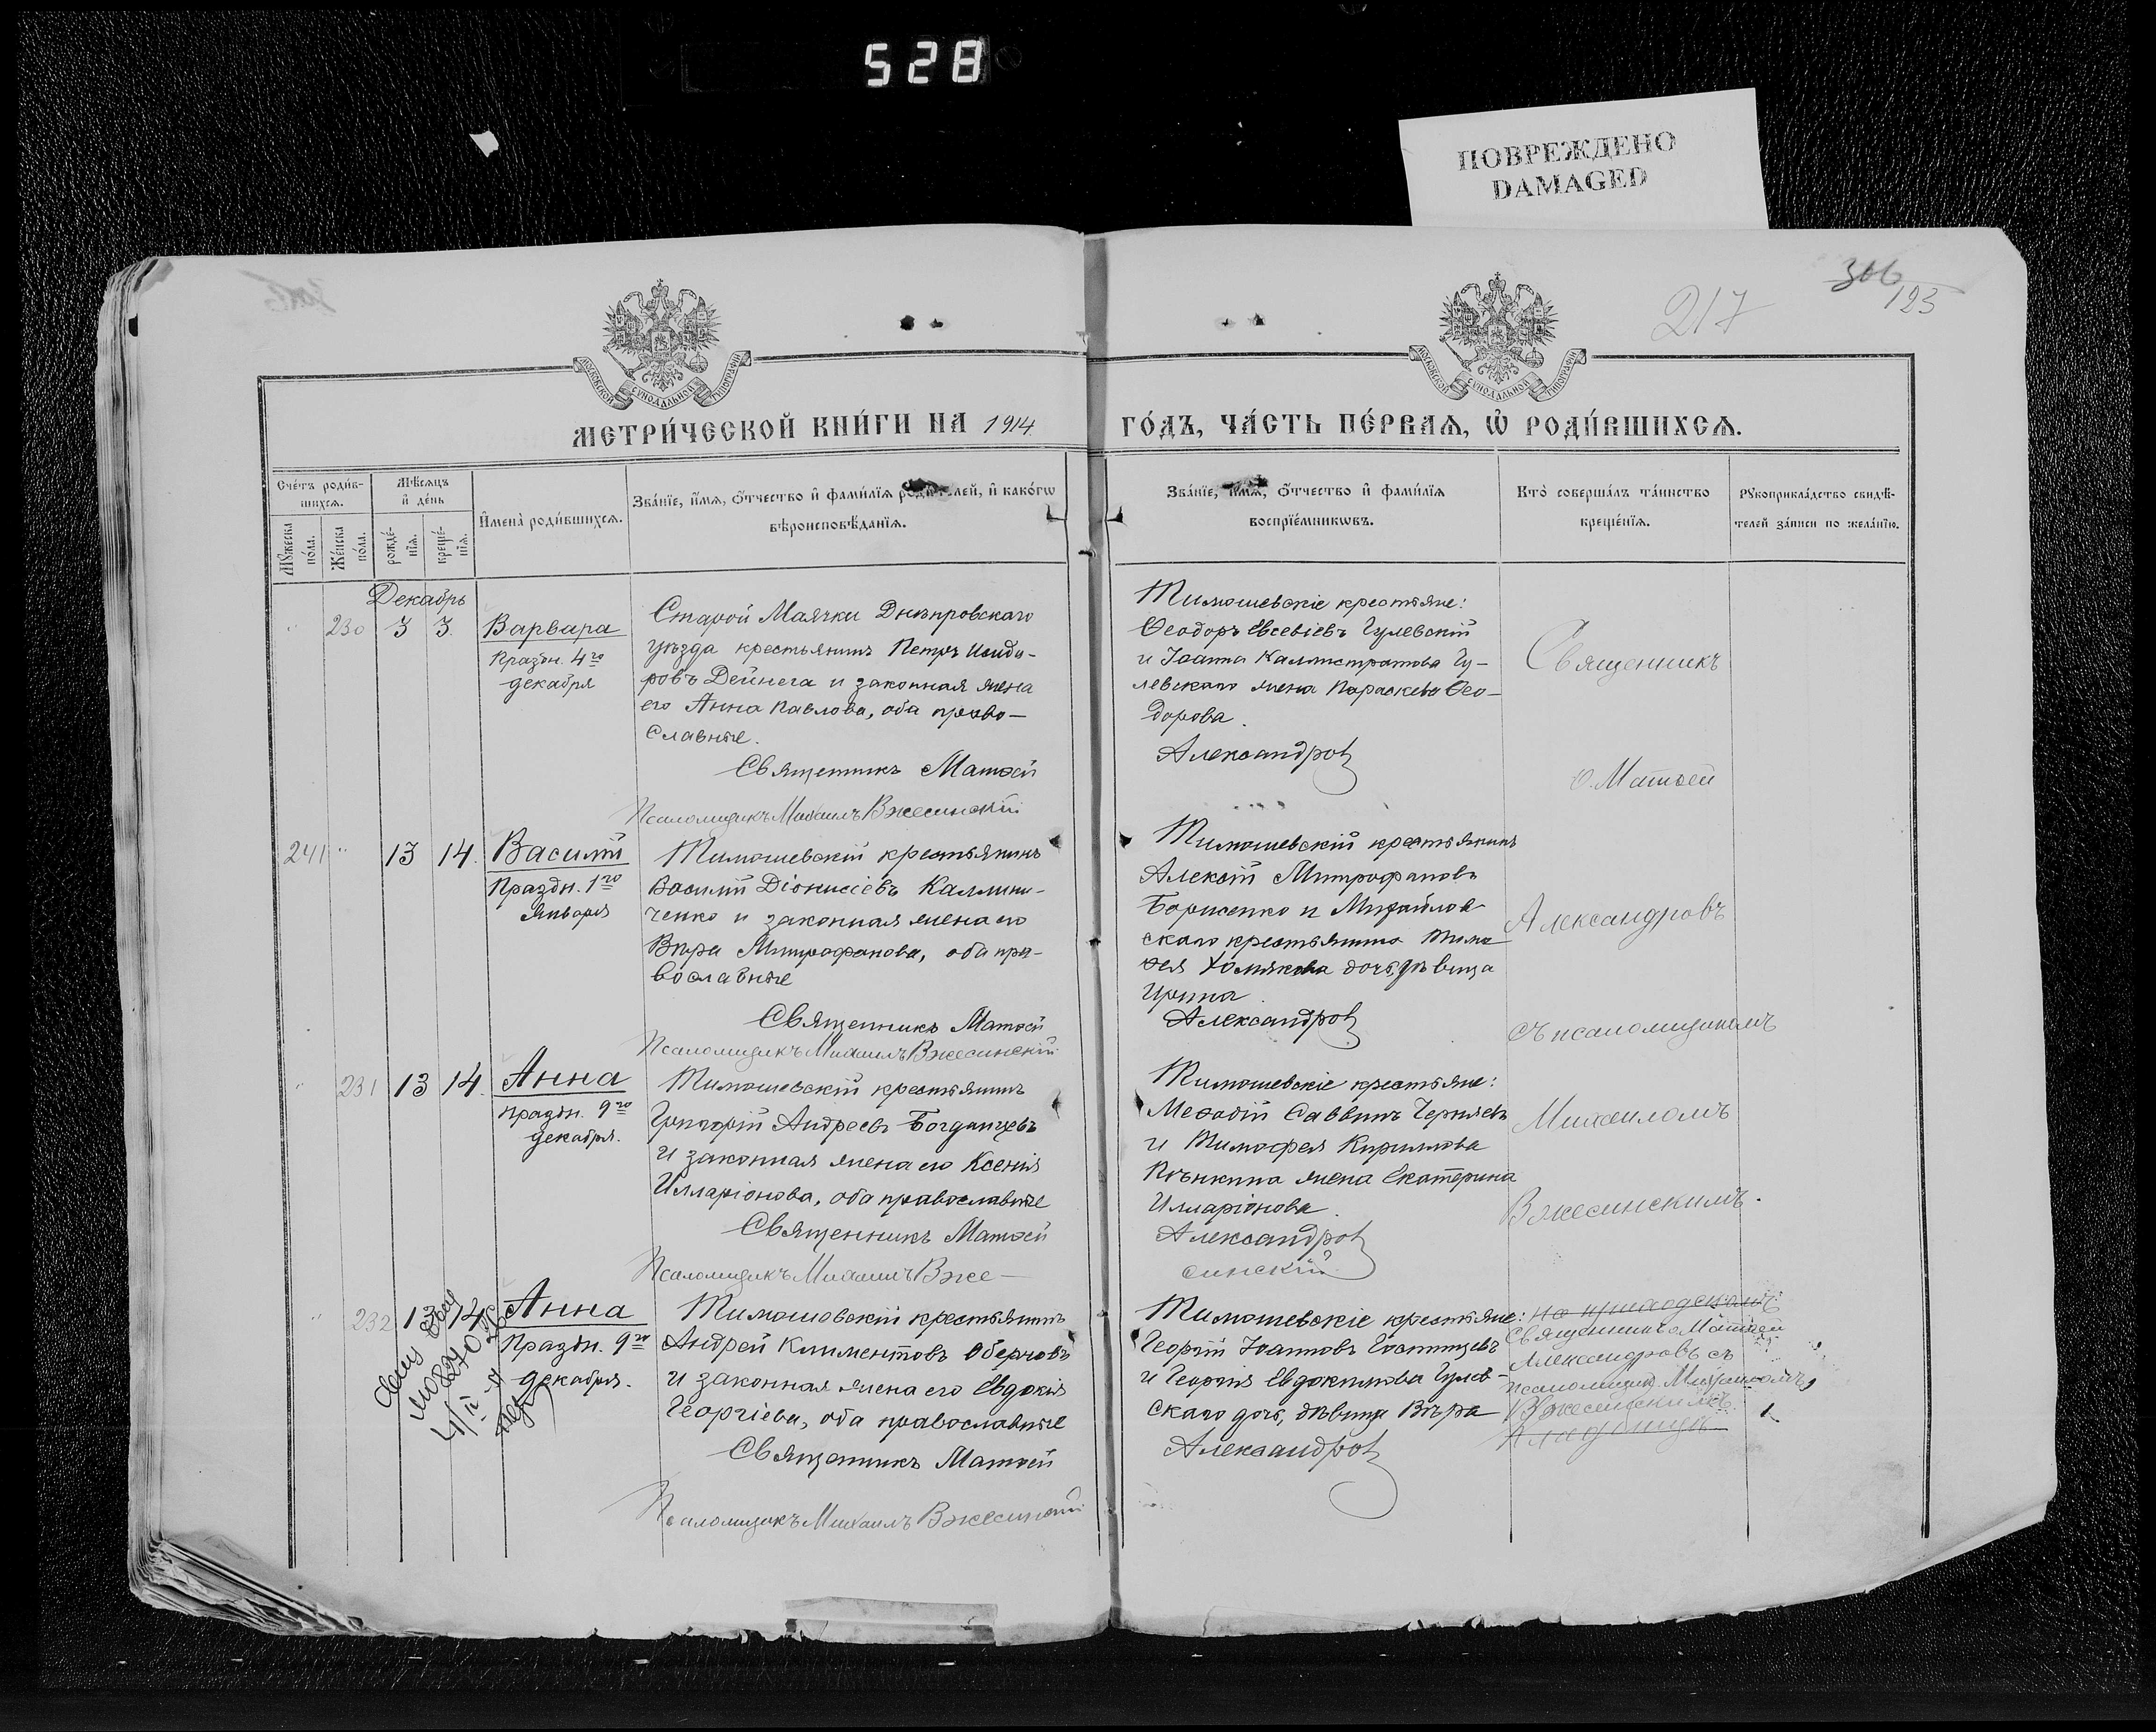 528
ПОВРЕЖДЕНО
DAMAGED
306
217
123
МОСКОВСКОЙ СѴНОДАЛЬНОЙ ТИПОГРАФІИ
МОСКОВСКОЙ СѴНОДАЛЬНОЙ ТИПОГРАФІИ
МЕТРИ́ЧЕСКОЙ КНИ́ГИ НА 1914
ГО́ДЪ, ЧА́СТЬ ПЕ́РВАѦ, Ѽ РОДИ́ВШИХСѦ.
Сче́тъ роди́в-
шихсѧ.
Мꙋ́жеска по́ла.
Же́нска по́ла.
Мѣ́сѧцъ
и҆ де́нь
рожде́-
нїѧ.
креще́-
нїѧ.
И҆мена̀ роди́вшихсѧ.
Зва́нїе, и҆́мѧ, ѻ҆́тчество и҆ фами́лїѧ роди́телей, и҆ како́гѡ
вѣроисповѣ́данїѧ.
Зва́нїе, и҆́мѧ, ѻ҆́тчество и҆ фами́лїѧ
воспрїе́мникѡвъ.
Кто̀ соверша́лъ та́инство
креще́нїѧ.
Рꙋкоприкла́дство свидѣ́-
телей за́писи по жела́нїю.
Декабрь
230 3 3. Варвара
Праздн. 4го
декабря
Старой Маячки Днѣпровскаго
уѣзда крестьянинъ Петръ Исидо-
ровъ Дейнега и законная жена
его Анна Павлова, оба право-
славные.
Священникъ Матѳей
Псаломщикъ Михаилъ Вжесинскій
Тимошевскіе крестьяне:
Ѳеодоръ Евсевіевъ Гулевскій
и Іоанна Каллистратова Гу-
левскаго жена Параскева Ѳео-
дорова.
Александров
Священникъ
о. Матѳей
241 13 14. Василій
Праздн. 1го
Января
Тимошевскій крестьянинъ
Василій Діонисіевъ Калини-
ченко и законная жена его
Вѣра Митрофанова, оба пра-
вославные
Священникъ Матѳей
Псаломщикъ Михаилъ Вжесинскій
Тимошевскій крестьянинъ
Алексій Митрофановъ
Борисенко и Михайлов-
скаго крестьянина Тимо-
ѳея Хомякова дочь, дѣвица
Ирина.
Александров
Александровъ
съ псаломщикомъ
231 13 14. Анна
Праздн. 9го
декабря.
Тимошевскій крестьянинъ
Григорій Андреевъ Богданцевъ
и законная жена его Ксенія
Илларіонова, оба православные
Священникъ Матѳей
Псаломщикъ Михаилъ Вже-
Тимошевскіе крестьяне:
Меѳодій Саввинъ Черняевъ
и Тимоѳея Кириллова
Пѣнкина жена Екатерина
Илларіонова.
Александров
синскій
Михаиломъ
Вжесинскимъ.
232 13 14. Анна
Праздн. 9го
декабря.
Тимошевскій крестьянинъ
Андрей Климентовъ Оберчовъ
и законная жена его Евдокія
Георгіева, оба православные
Священникъ Матѳей
Псаломщикъ Михаилъ Вжесинскій
Тимошевскіе крестьяне:
Георгій Іоанновъ Гостинцевъ
и Георгія Евдокимова Гулев-
скаго дочь, дѣвица Вѣра
Александров
Священникъ о. Матѳей
Александровъ съ
псаломщик. Михаиломъ
Вжесинскимъ.